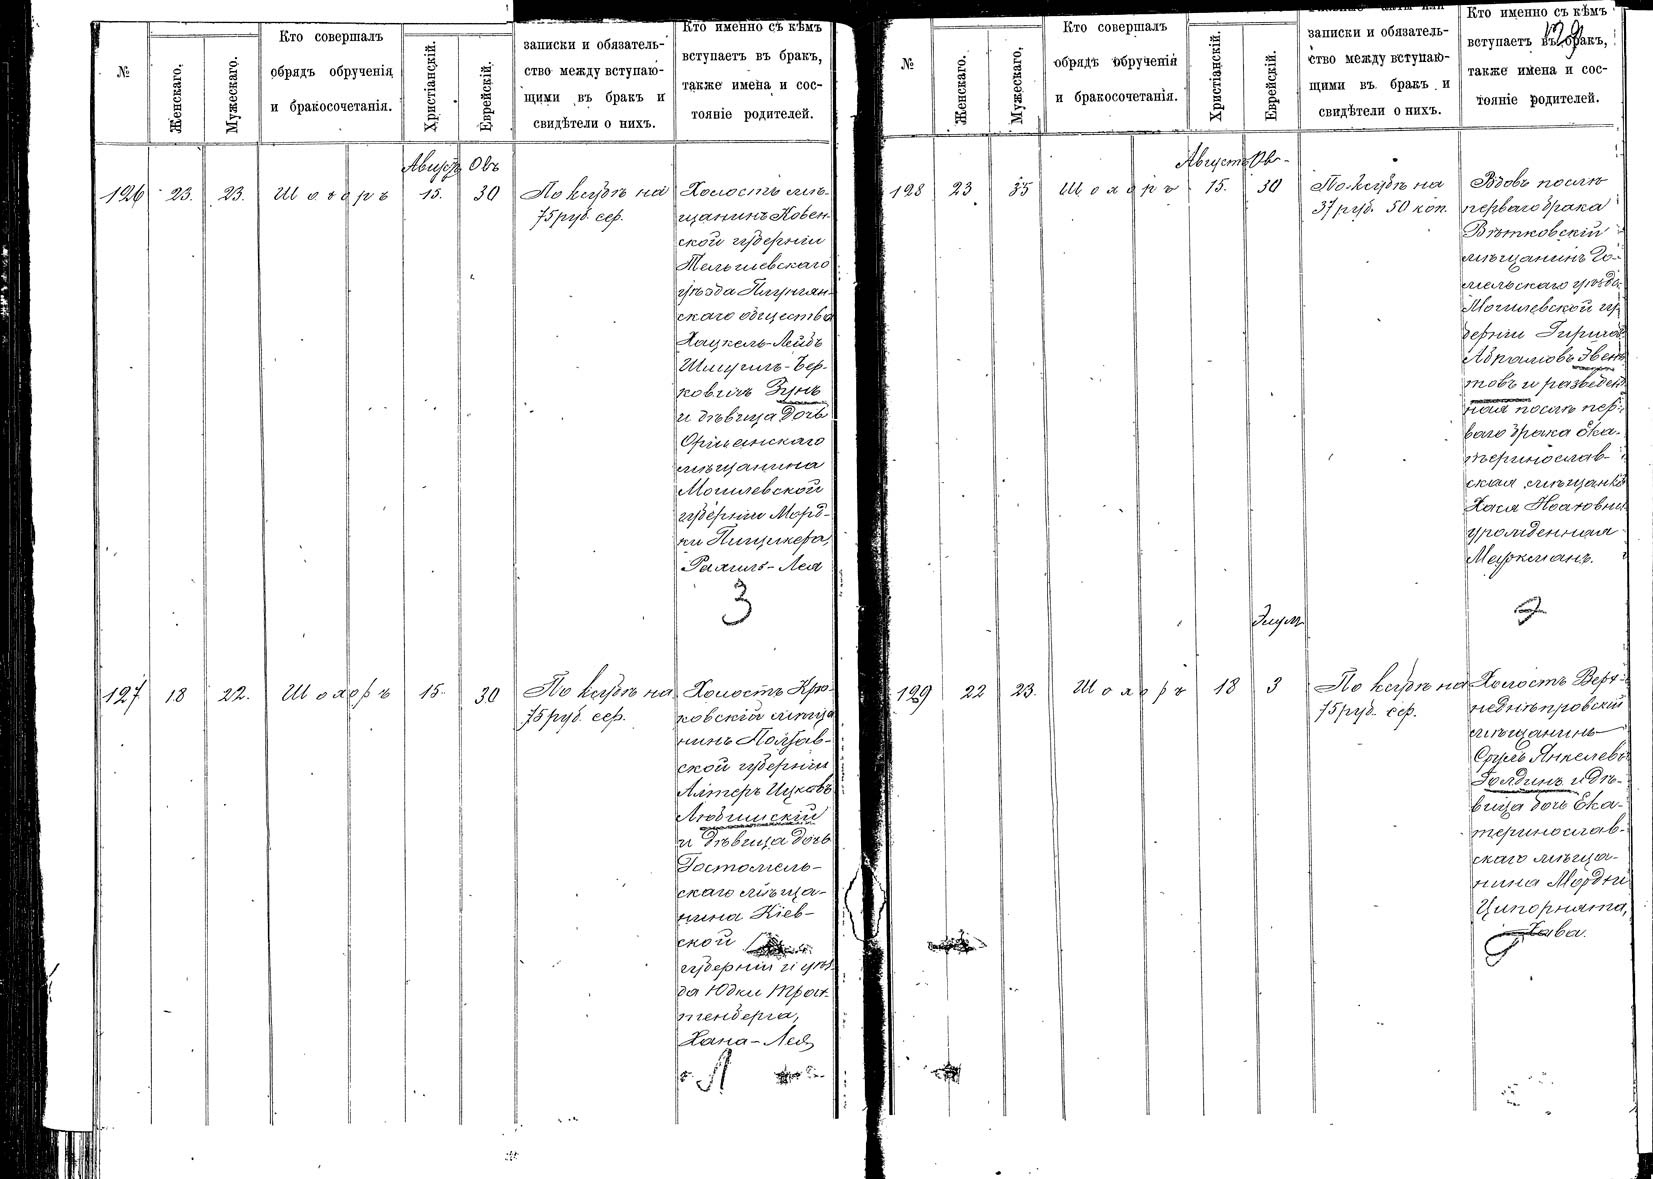 №
Женскаго.
Мужескаго.
Кто совершалъ
обрядъ обрученія
и бракосочетанія.
Христіанскій.
Еврейскій.
записки и обязатель-
ство между вступаю-
щими въ бракъ и
свидѣтели о нихъ.
Кто именно съ кѣмъ
вступаетъ въ бракъ,
также имена и сос-
тояніе родителей.
Августъ Овъ
126 23. 23. Шохоръ 15. 30
По ксубѣ на
75 руб. сер.
Холостъ мѣ-
щанинъ Ковен-
ской губерніи
Тельшевскаго
уѣзда Плунгян-
скаго общества
Хацкель-Лейбъ
Шмуилъ-Бер-
ковичъ Зунъ
и дѣвица дочь
Оршанскаго
мѣщанина
Могилевской
губерніи Морд-
ки Пищикера,
Рахиль-Лея
З
127 18 22. Шохоръ 15. 30
По ксубѣ на
75 руб. сер.
Холостъ Крю-
ковскій мѣща
нинъ Полтав-
ской губерніи
Алтеръ Ицковъ
Любимскій
и дѣвица дочь
Гостомель-
скаго мѣща-
нина Кіев-
ской
губерніи и уѣз-
да Юдки Трах-
тенберга,
Хана-Лея
Л
№
Женскаго.
Мужескаго.
Кто совершалъ
обрядъ обрученія
и бракосочетанія.
Христіанскій.
Еврейскій.
записки и обязатель-
ство между вступаю-
щими въ бракъ и
свидѣтели о нихъ.
Кто именно съ кѣмъ
вступаетъ въ бракъ,
также имена и сос-
тояніе родителей.
Августъ Овъ
128 23 35 Шохоръ 15. 30
По ксубѣ на
37 руб. 50 коп.
Вдовъ послѣ
перваго брака
Вѣтковскій
мѣщанинъ Го-
мельскаго уѣзда
Могилевской гу-
берніи Гиршъ
Абрамовъ Звен
товъ и разведен-
ная послѣ пер-
ваго брака Ека-
теринослав-
ская мѣщанка
Хася Ноаховна
урожденная
Маркманъ.
Элулъ
129 22 23. Шохоръ 18 3
По ксубѣ на
75 руб. сер.
Холостъ Верх-
неднѣпровскій
мѣщанинъ
Сруль Янкелевъ
Голдинъ и дѣ-
вица дочь Ека-
теринослав-
скаго мѣща-
нина Мордки
Ципорнята,
Хава.
Г